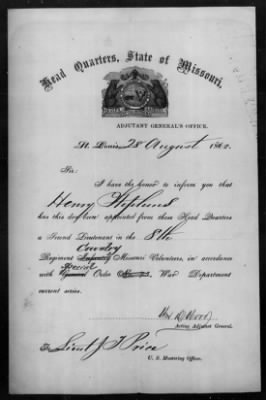 Head Quarters, State of Missouri,
ADJUTANT GENERAL'S OFFICE.
St. Louis, 28 August 1862.
Sir:
I have the honor to inform you that
Henry
has this day been appointed from these Head Quarters
a Second Lieutenant in the 8th
Cavalry
Regiment Infantry Missouri Volunteers, in accordance
Special
with General Order No. War Department
current series.
Wm. D. Wood
Acting Adjutant General.
To Lieut J T Price
U. S. Mustering Officer.